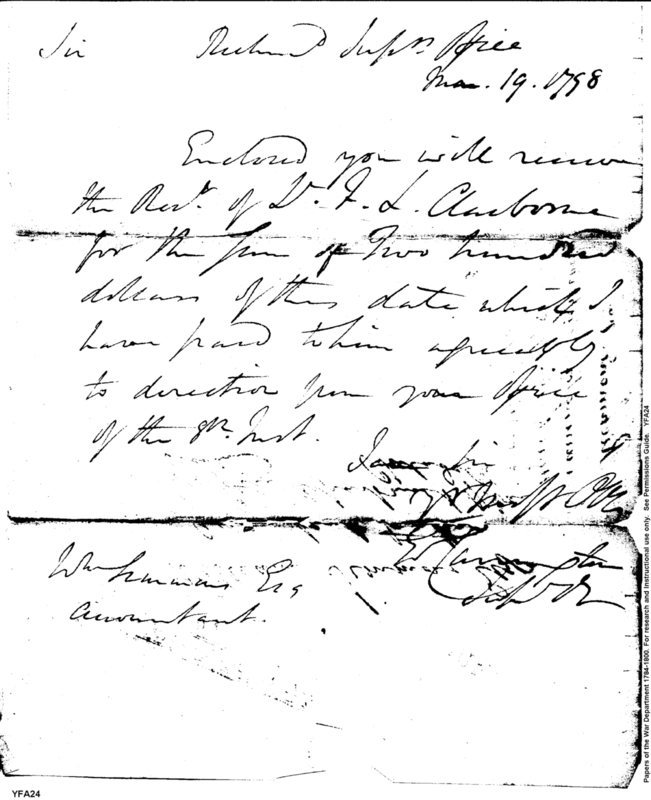 Sir Richmd Supr's Office
Mar. 19. 1798
Enclosed you will receive
the Rect. of Lt. F. L. Claiborne
for the sum of Two hundred
dollars of this date which I
have paid to him agreeably
to direction from your Office
of the 8th Inst.
I am Sir
E Carrington
Wm Simmons Esq
Accountant.
Papers of the War Department 1784-1800. For research and Instructional use only. See Permissions Guide. YFA24
YFA24